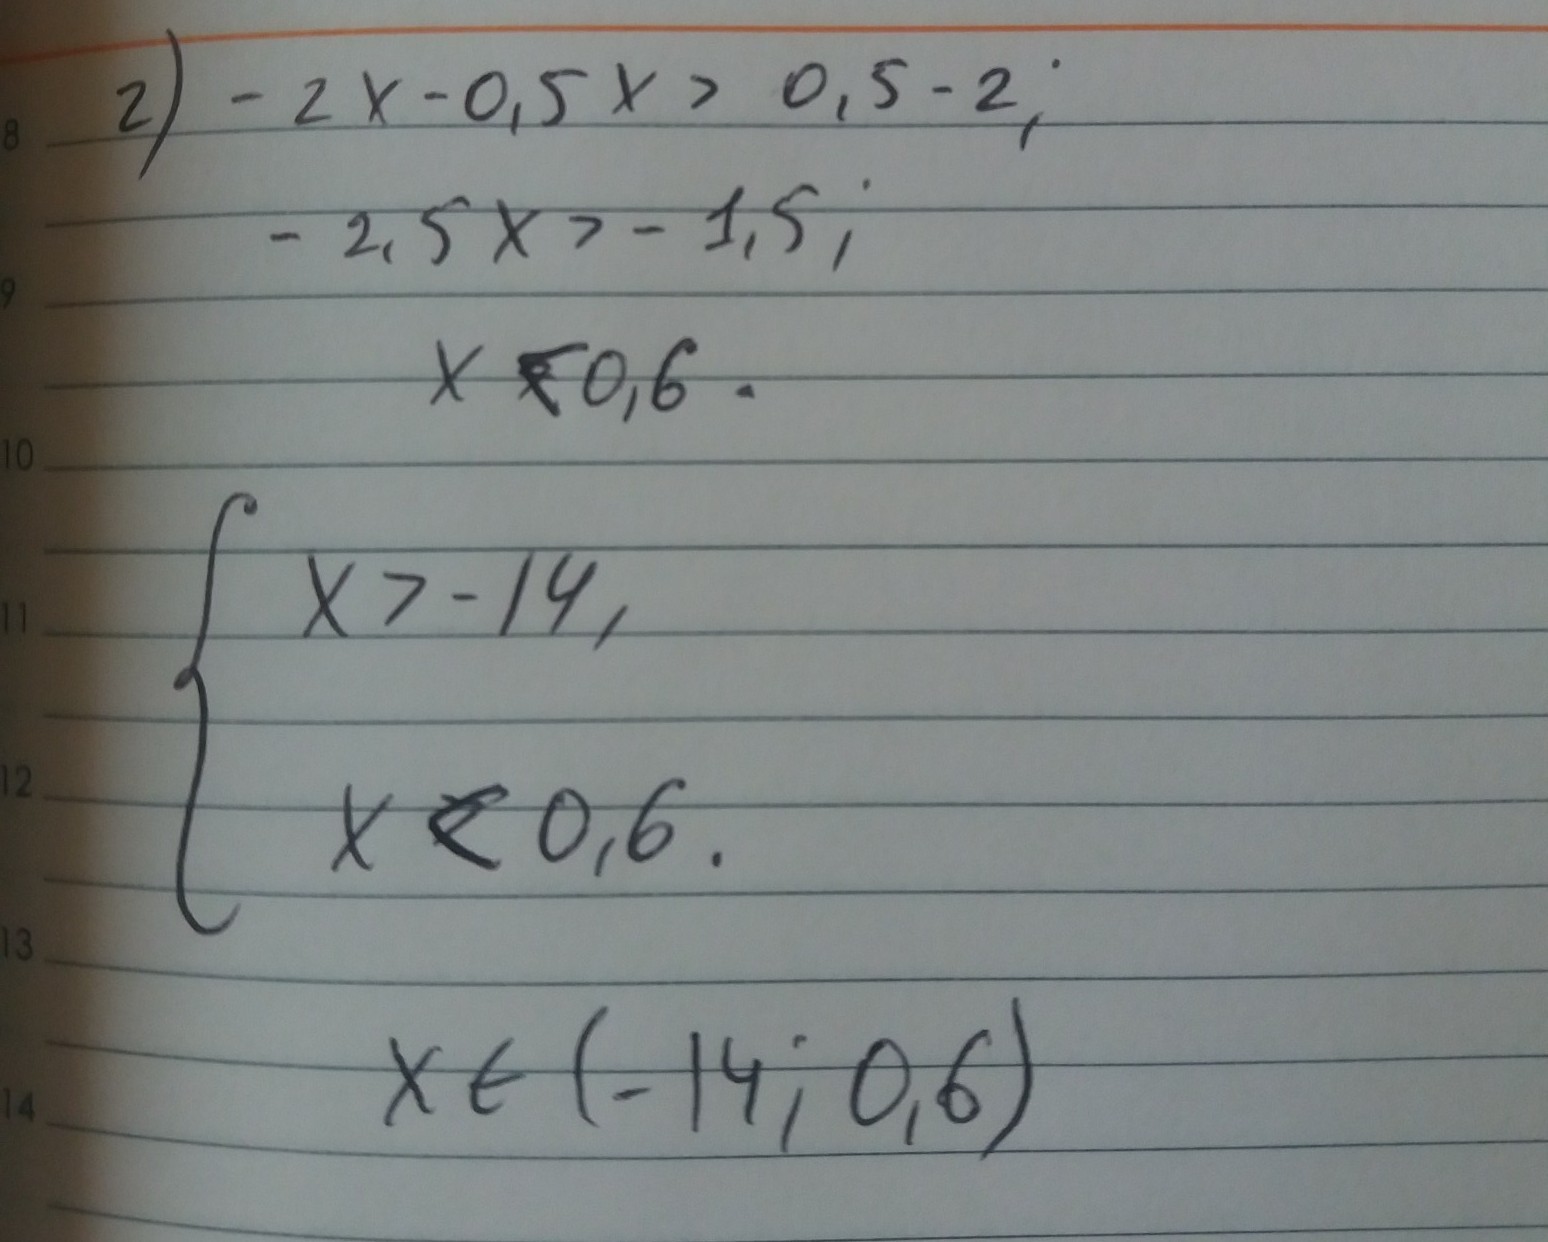 8 2) - 2x - 0,5x > 0,5 - 2;
- 2,5x > - 1,5;
9
x < 0,6.
10
{ x > -14,
11
12
x < 0,6.
13
x ∈ (-14; 0,6)
14